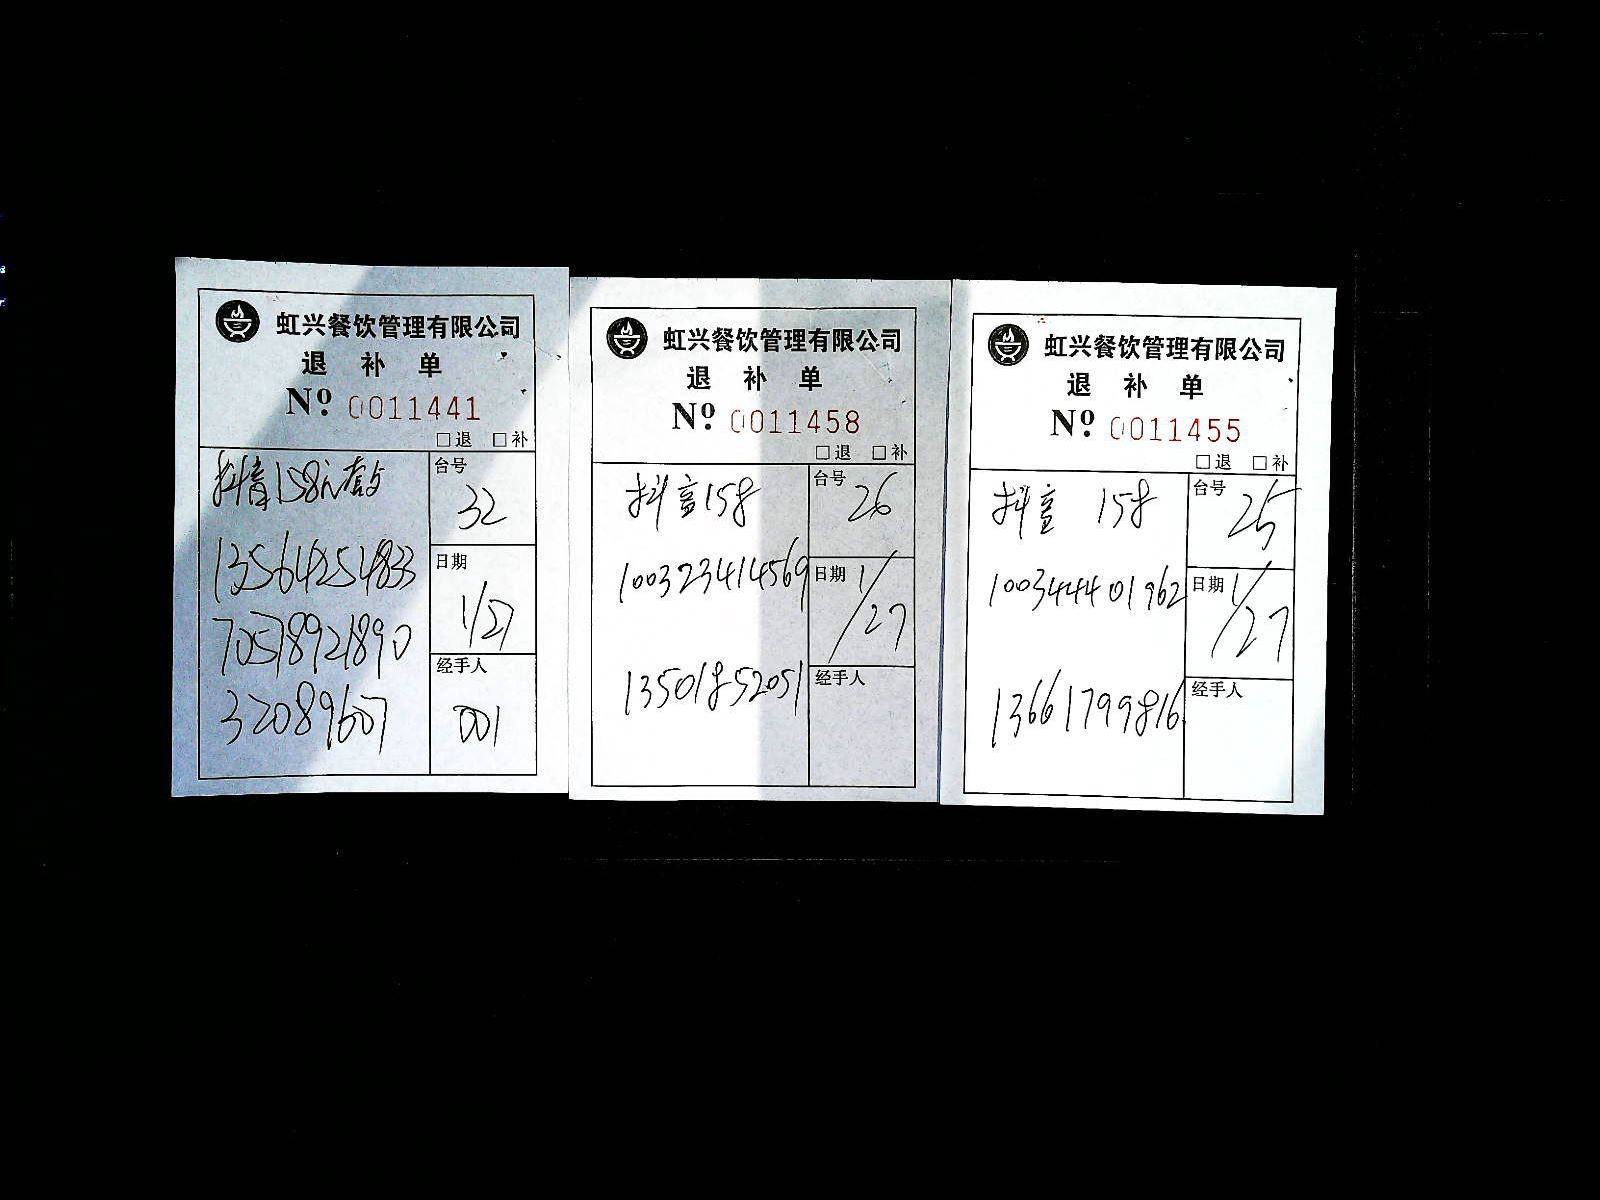 虹兴餐饮管理有限公司
退 补 单
Nº: 0011441
□退 □补
抖音158元套
13564254833
70578921890
32089607
台号
32
日期
1/27
经手人
001
虹兴餐饮管理有限公司
退 补 单
Nº: 0011458
□退 □补
抖音158
100323414569
13501852051
台号
26
日期
1/27
经手人
虹兴餐饮管理有限公司
退 补 单
Nº: 0011455
□退 □补
抖音 158
100344401962
13661799816
台号
25
日期
1/27
经手人